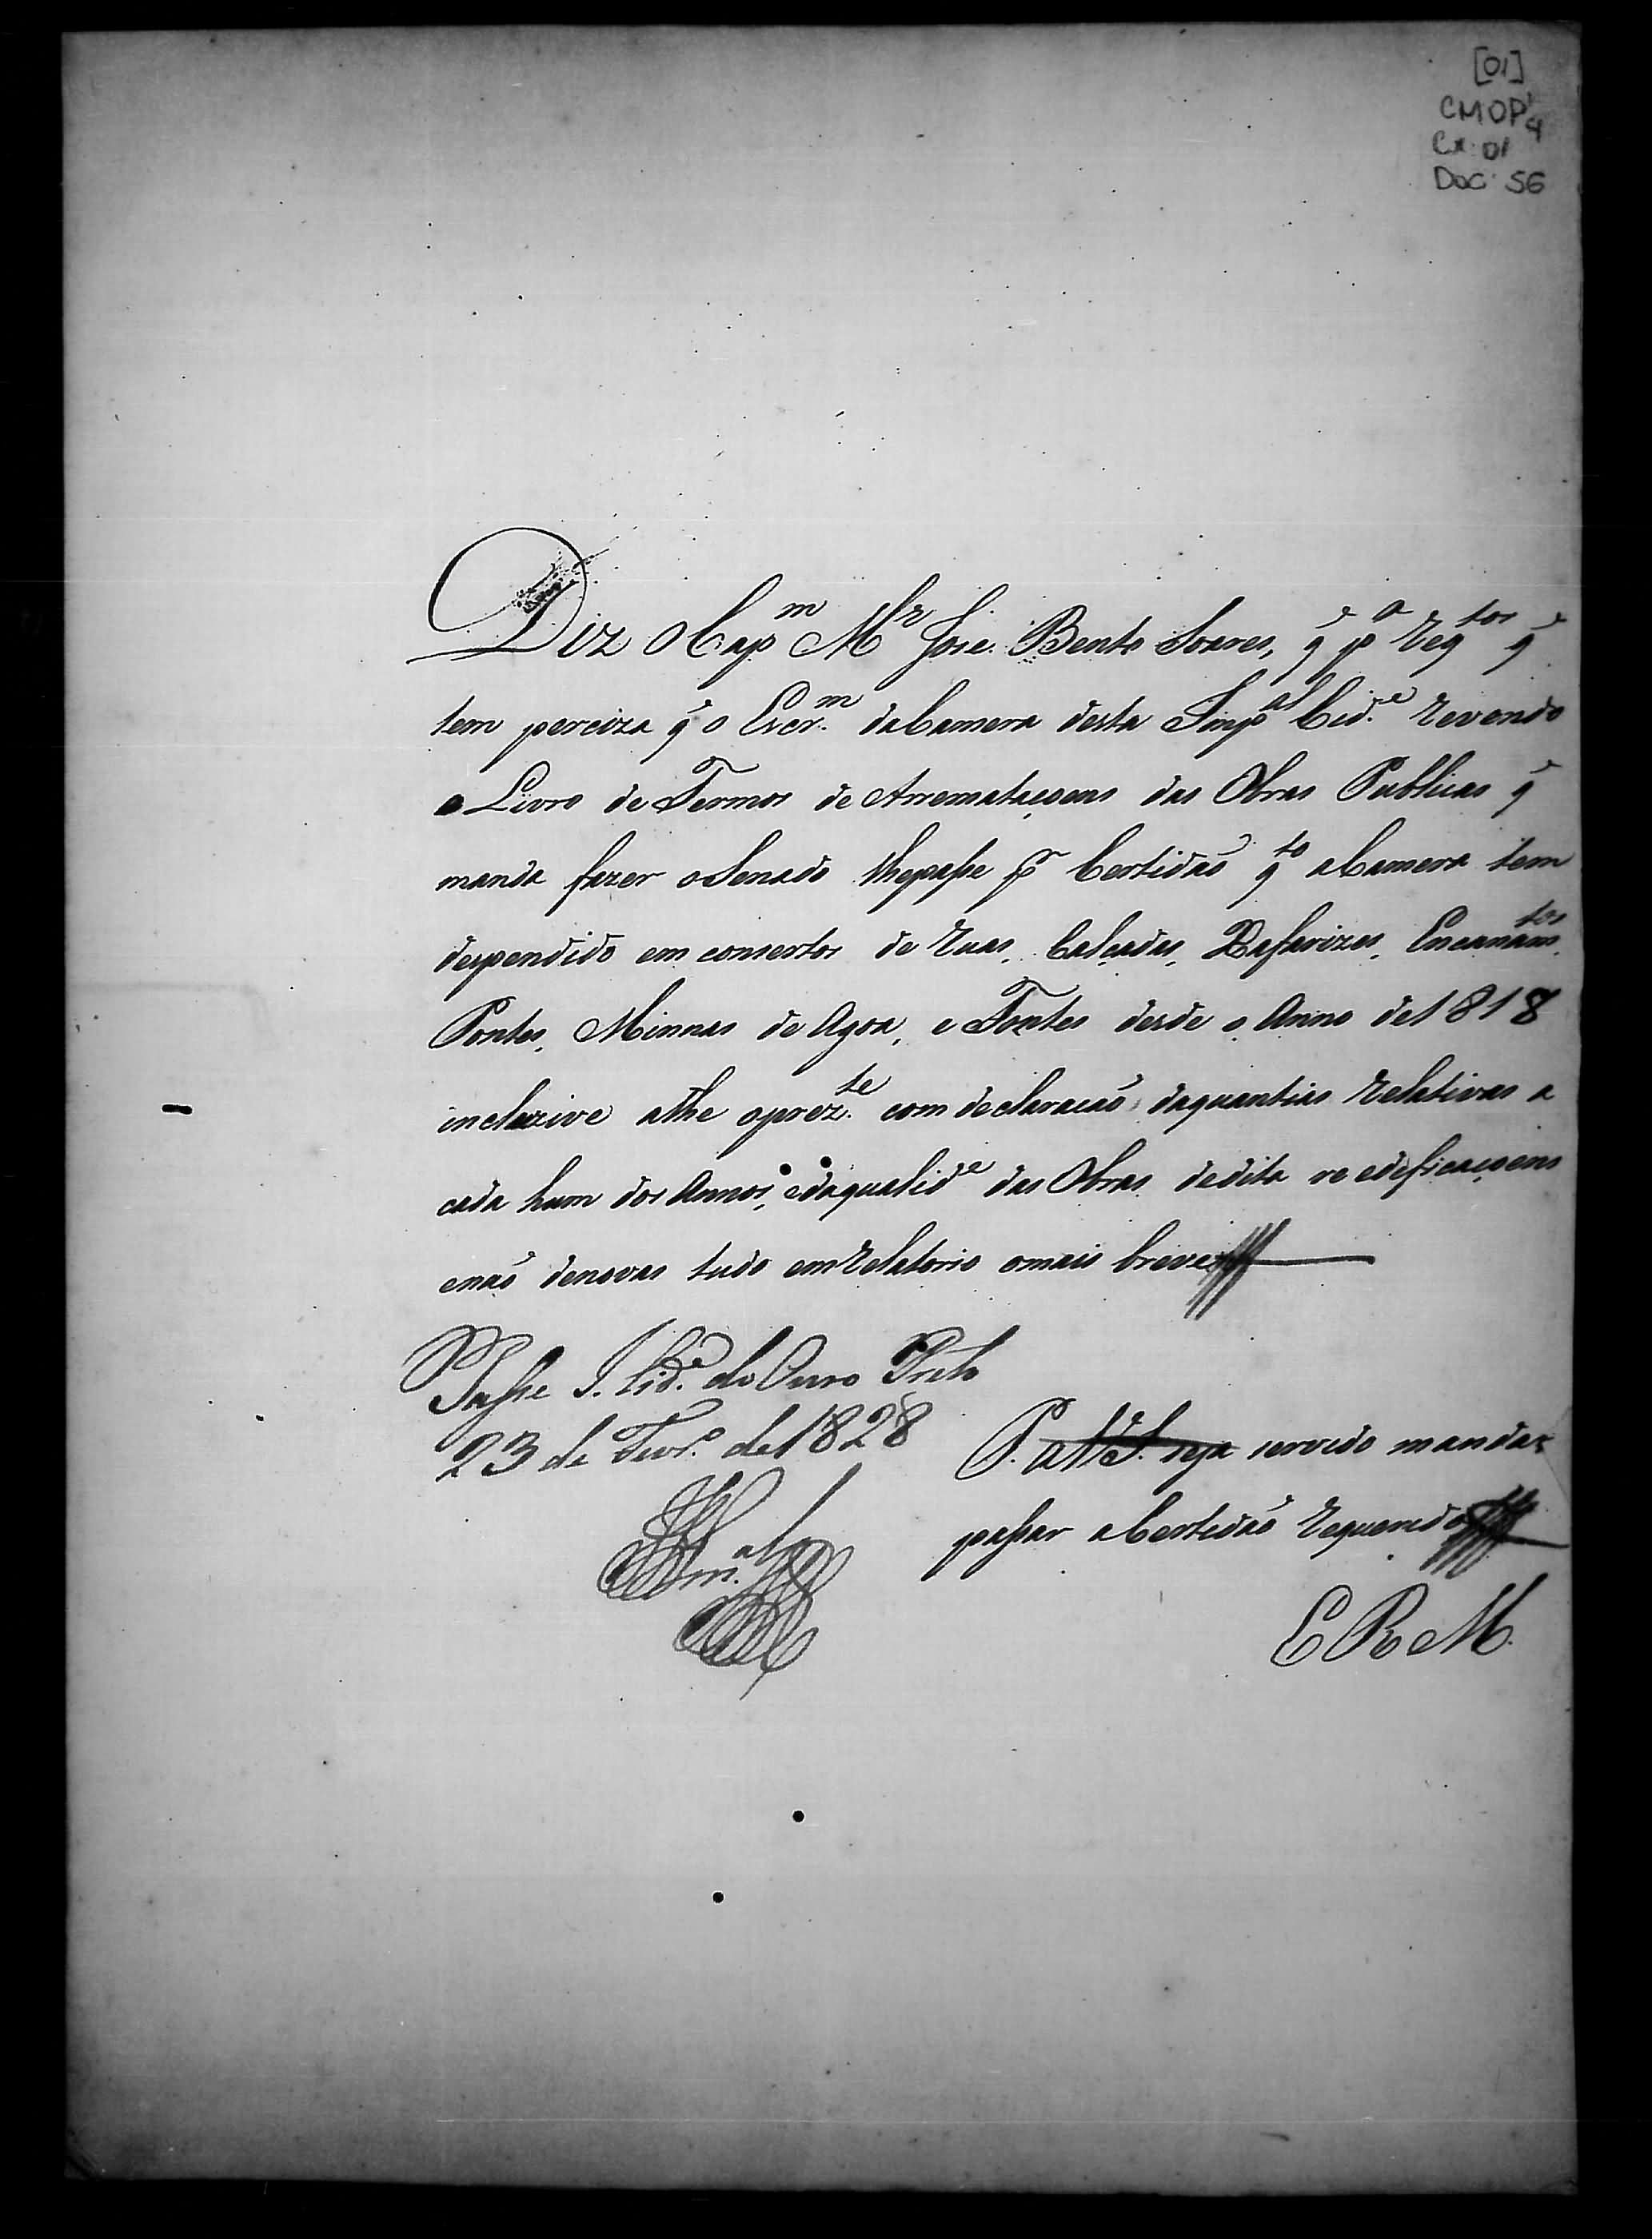 [01]
CMOP 1/4
Cx. 01
Doc. 56
Diz o Cap.m M.r Jose Bento Soares, q̃ p.a reqtos q̃
tem perciza q̃ o Escr.m da Camera desta Imp.al Cid.e revendo
o Livro de Termos de Arremataçoens das Obras Publicas q̃
manda fazer o Senado lhe passe p.r Certidaõ q.to a Camera tem
despendido em consertos de ruas, Calçadas, Xafarizes, Encanam.tos
Pontes, Minnas de Agoa, e Fontes desde o Anno de 1818
incluzive athe o prez.te com declaracaõ da quantias relativas a
cada hum dos Annos, e da qualid.e das Obras dedita reedeficaçoens
e naõ de novas tudo em relatorio o mais breve
Passe I. Cid.e do Ouro Preto
23 de Fevr.o de 1828
P. a V.S. seja servido mandar
passar a Certidaõ requerida
E R M.